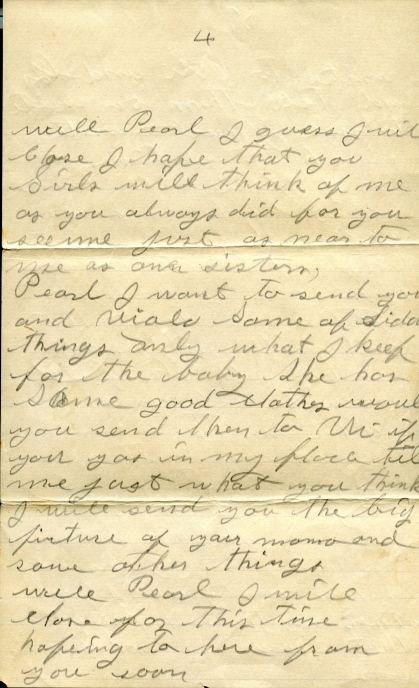 4
well Pearl I guess I will
Close I hope that you
Girls will think of me
as you always did for you
seeme just as near to
me as own sisters,
Pearl I want to send you
and Viola Some of Lida
things only what I keep
for the baby She has
Some good clothes would
you send then to Vi if
you was in my place tell
me just what you think
I will send you the big
picture of your moma and
some other things
well Pearl I will
close for this time
hopeing to here from
you soon